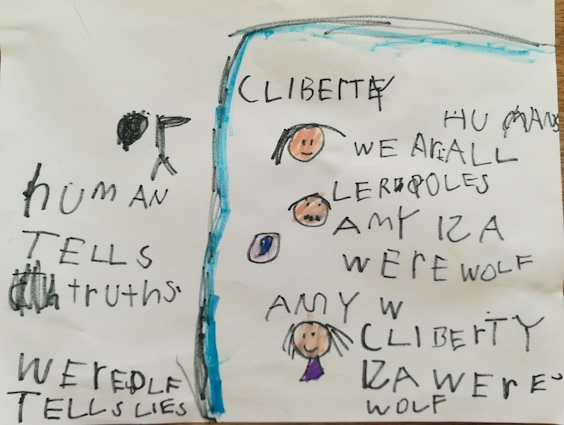 human
TELLS
truths.
WEREOLF
TELLS LIES
CLIBERTY
HUMANS
WE Are ALL
LERPOLES
AMY IZ A
WEREWOLF
AMY W
CLIBERTY
IZ A WERE-
WOLF